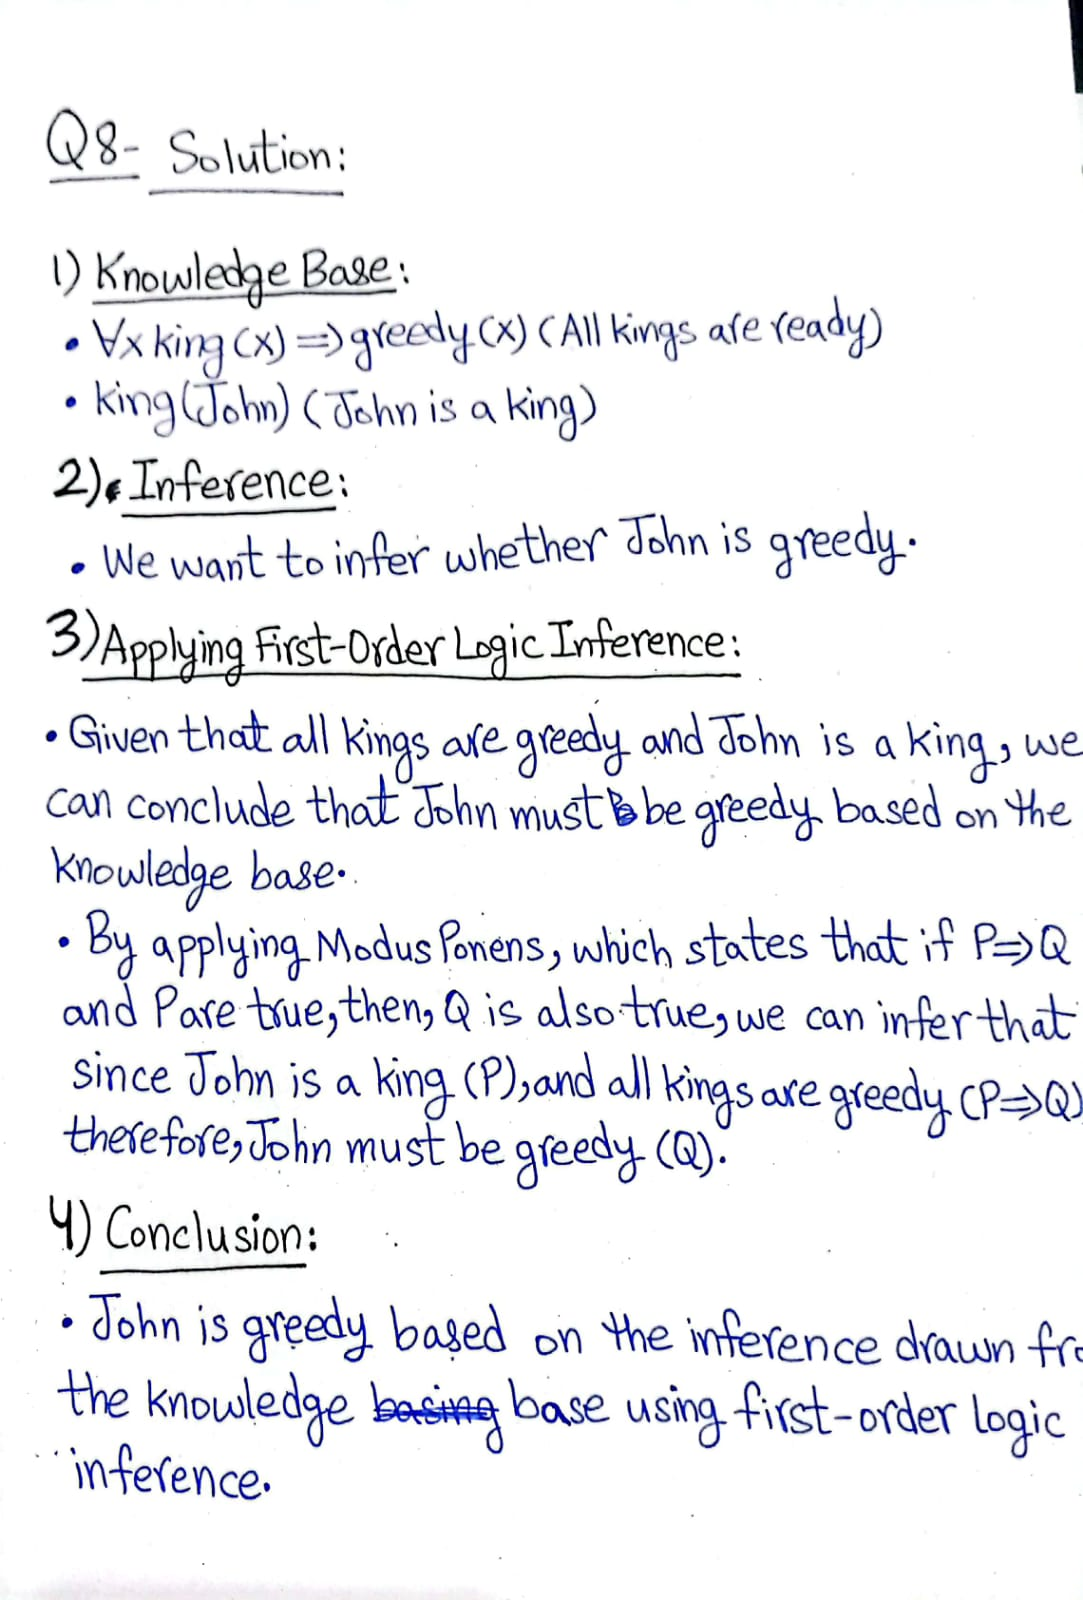 Q8- Solution:
1) Knowledge Base:
• ∀x king(x) => greedy(x) (All kings are ready)
• king(John) (John is a king)
2) Inference:
• We want to infer whether John is greedy.
3) Applying First-Order Logic Inference:
• Given that all kings are greedy and John is a king, we
can conclude that John must be greedy based on the
knowledge base.
• By applying Modus Ponens, which states that if P=>Q
and P are true, then, Q is also true, we can infer that
since John is a king (P), and all kings are greedy (P=>Q)
therefore, John must be greedy (Q).
4) Conclusion:
• John is greedy based on the inference drawn fro
the knowledge basing base using first-order logic
inference.